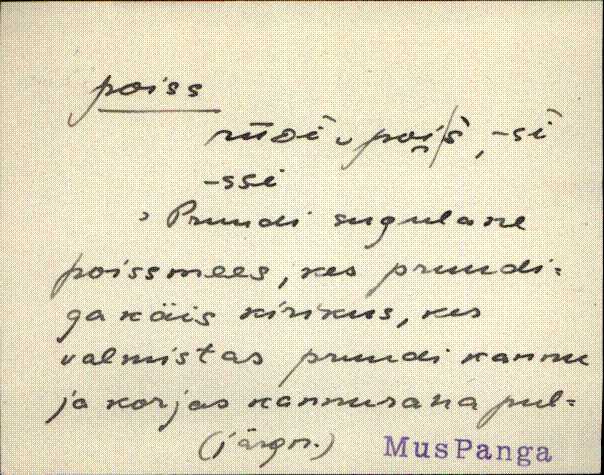 poiss
rūDi ᴗ poi̯/š̀, -si
-ssi
› Pruudi sugulane
poissmees, kes pruudi-
ga käis kirikus, kes
valmistas pruudi kannu
ja korjas kannuraha pul-
(järgn.) MusPanga